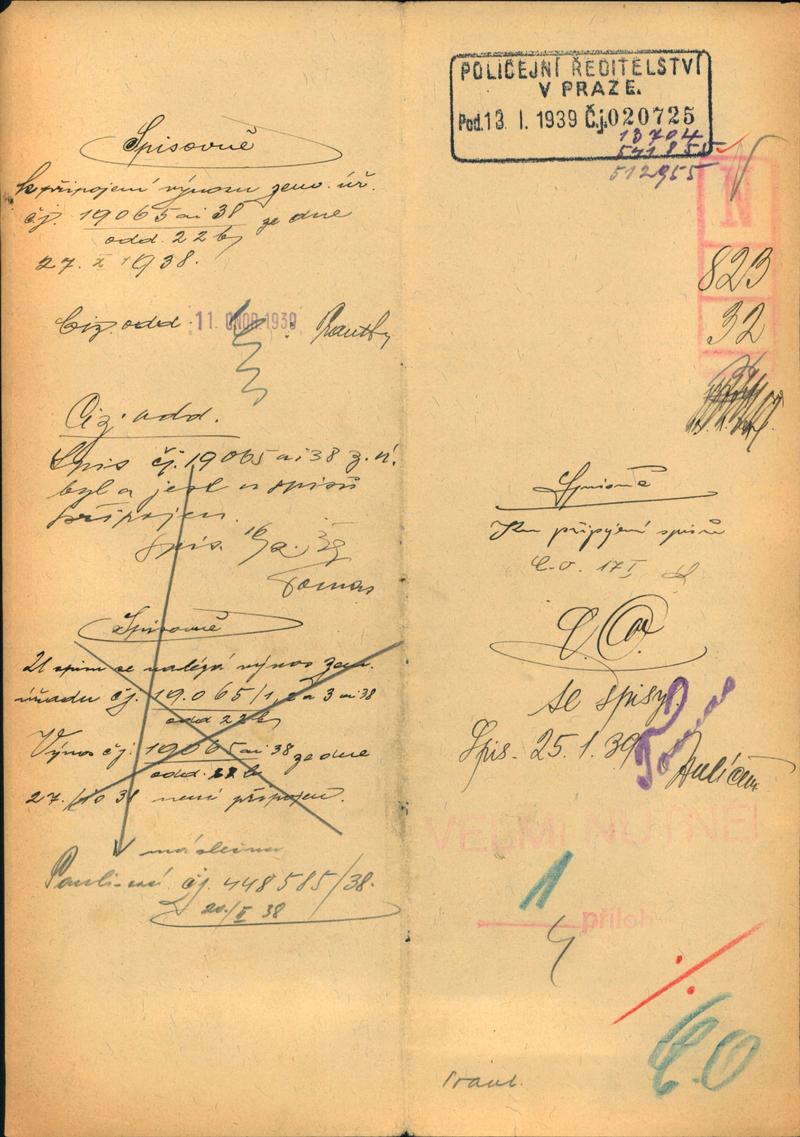 Spisovně
k připojení výnosu zem. úř.
čj. 19065 ai 38 ze dne
odd. 22 b
27. X 1938.
Ciz. odd. 11. ÚNOR 1939
Ciz. odd.
Spis čj. 19065 ai 38 z. ú.
byl a jest u spisů
připojen.
Spis. 16/2. 39
Tomas
Spisovně
U spisu se nalézá výnos zem.
úřadu čj. 19.065/1, 2 a 3 ai 38
odd 22 b
Výnos čj. 19065 ai 38 ze dne
odd. 22 b
27./10 38 není připojen.
čj. 448585/38.
38
POLICEJNÍ ŘEDITELSTVÍ
V PRAZE.
Pod. 13. I. 1939 Č.j. 020725
13704
541855
512955
N
823
32
Spisovně
Ku připojení spisů
C.O. 17/I
C.O.
se spisy.
Spis. 25.1.39
Tomas
VELMI NUTNÉ!
1
příloh
C.O